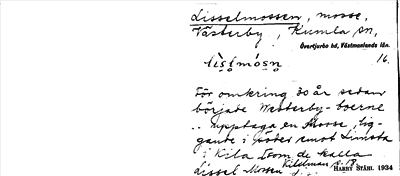 Lisselmossen, mosse,
Västerby, Kumla sn,
Övertjurbo hd, Västmanlands län.
16.
För omkring 30 år sedan
började Westerby-boerne
.. upptaga en Mosse, lig-
gande i söder emot Linsta
i Kila Som de kalla
Lissel Mossen
HARRY STÅHL 1934